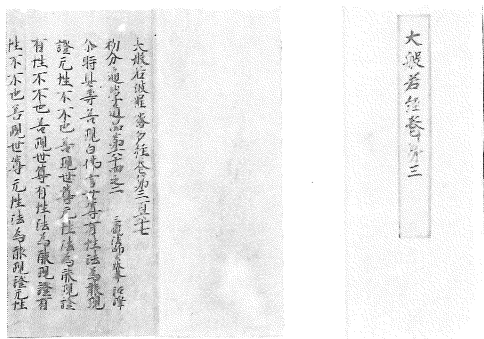 大般若経巻第三
大般若波羅蜜多經卷第三百六十七
初分遍學道品第六十四之二 三藏法師玄奘奉詔譯
尒時具壽善現白佛言世尊有性法為能現
證无性不不也善現世尊无性法為能現證
有性不不也善現世尊有性法為能現證有
性不不也善現世尊无性法為能現證无性